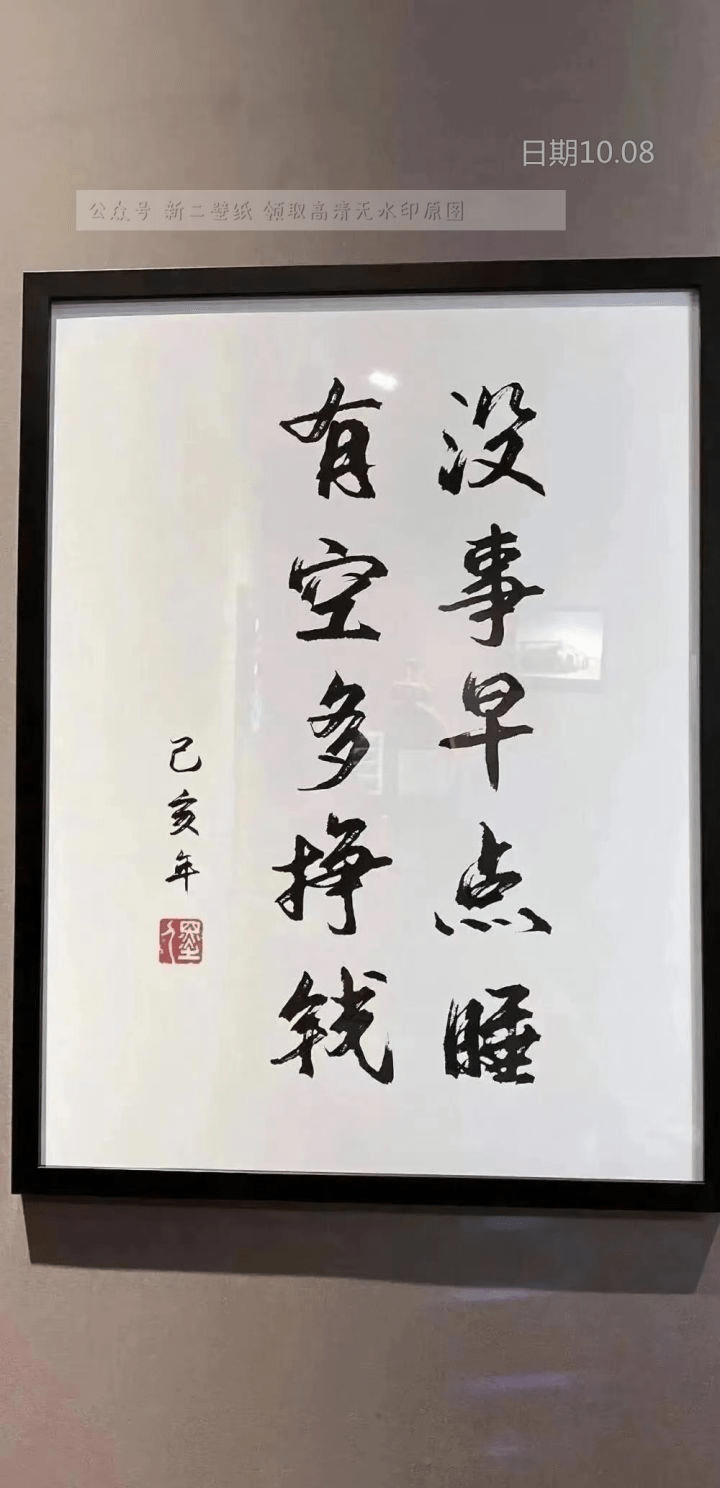 日期10.08
公众号 新二壁纸 领取高清无水印原图
没事早点睡
有空多挣钱
己亥年